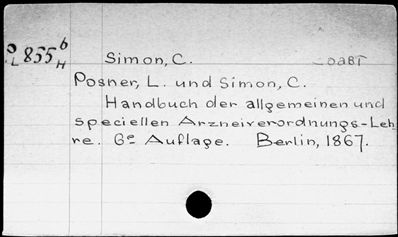 L855 b H
Simon, C.
Posner, L. und Simon, C.
Handbuch der allgemeinen und
speciellen Arzneiverordnungs-Leh
re. 6e Auflage. Berlin, 1867.